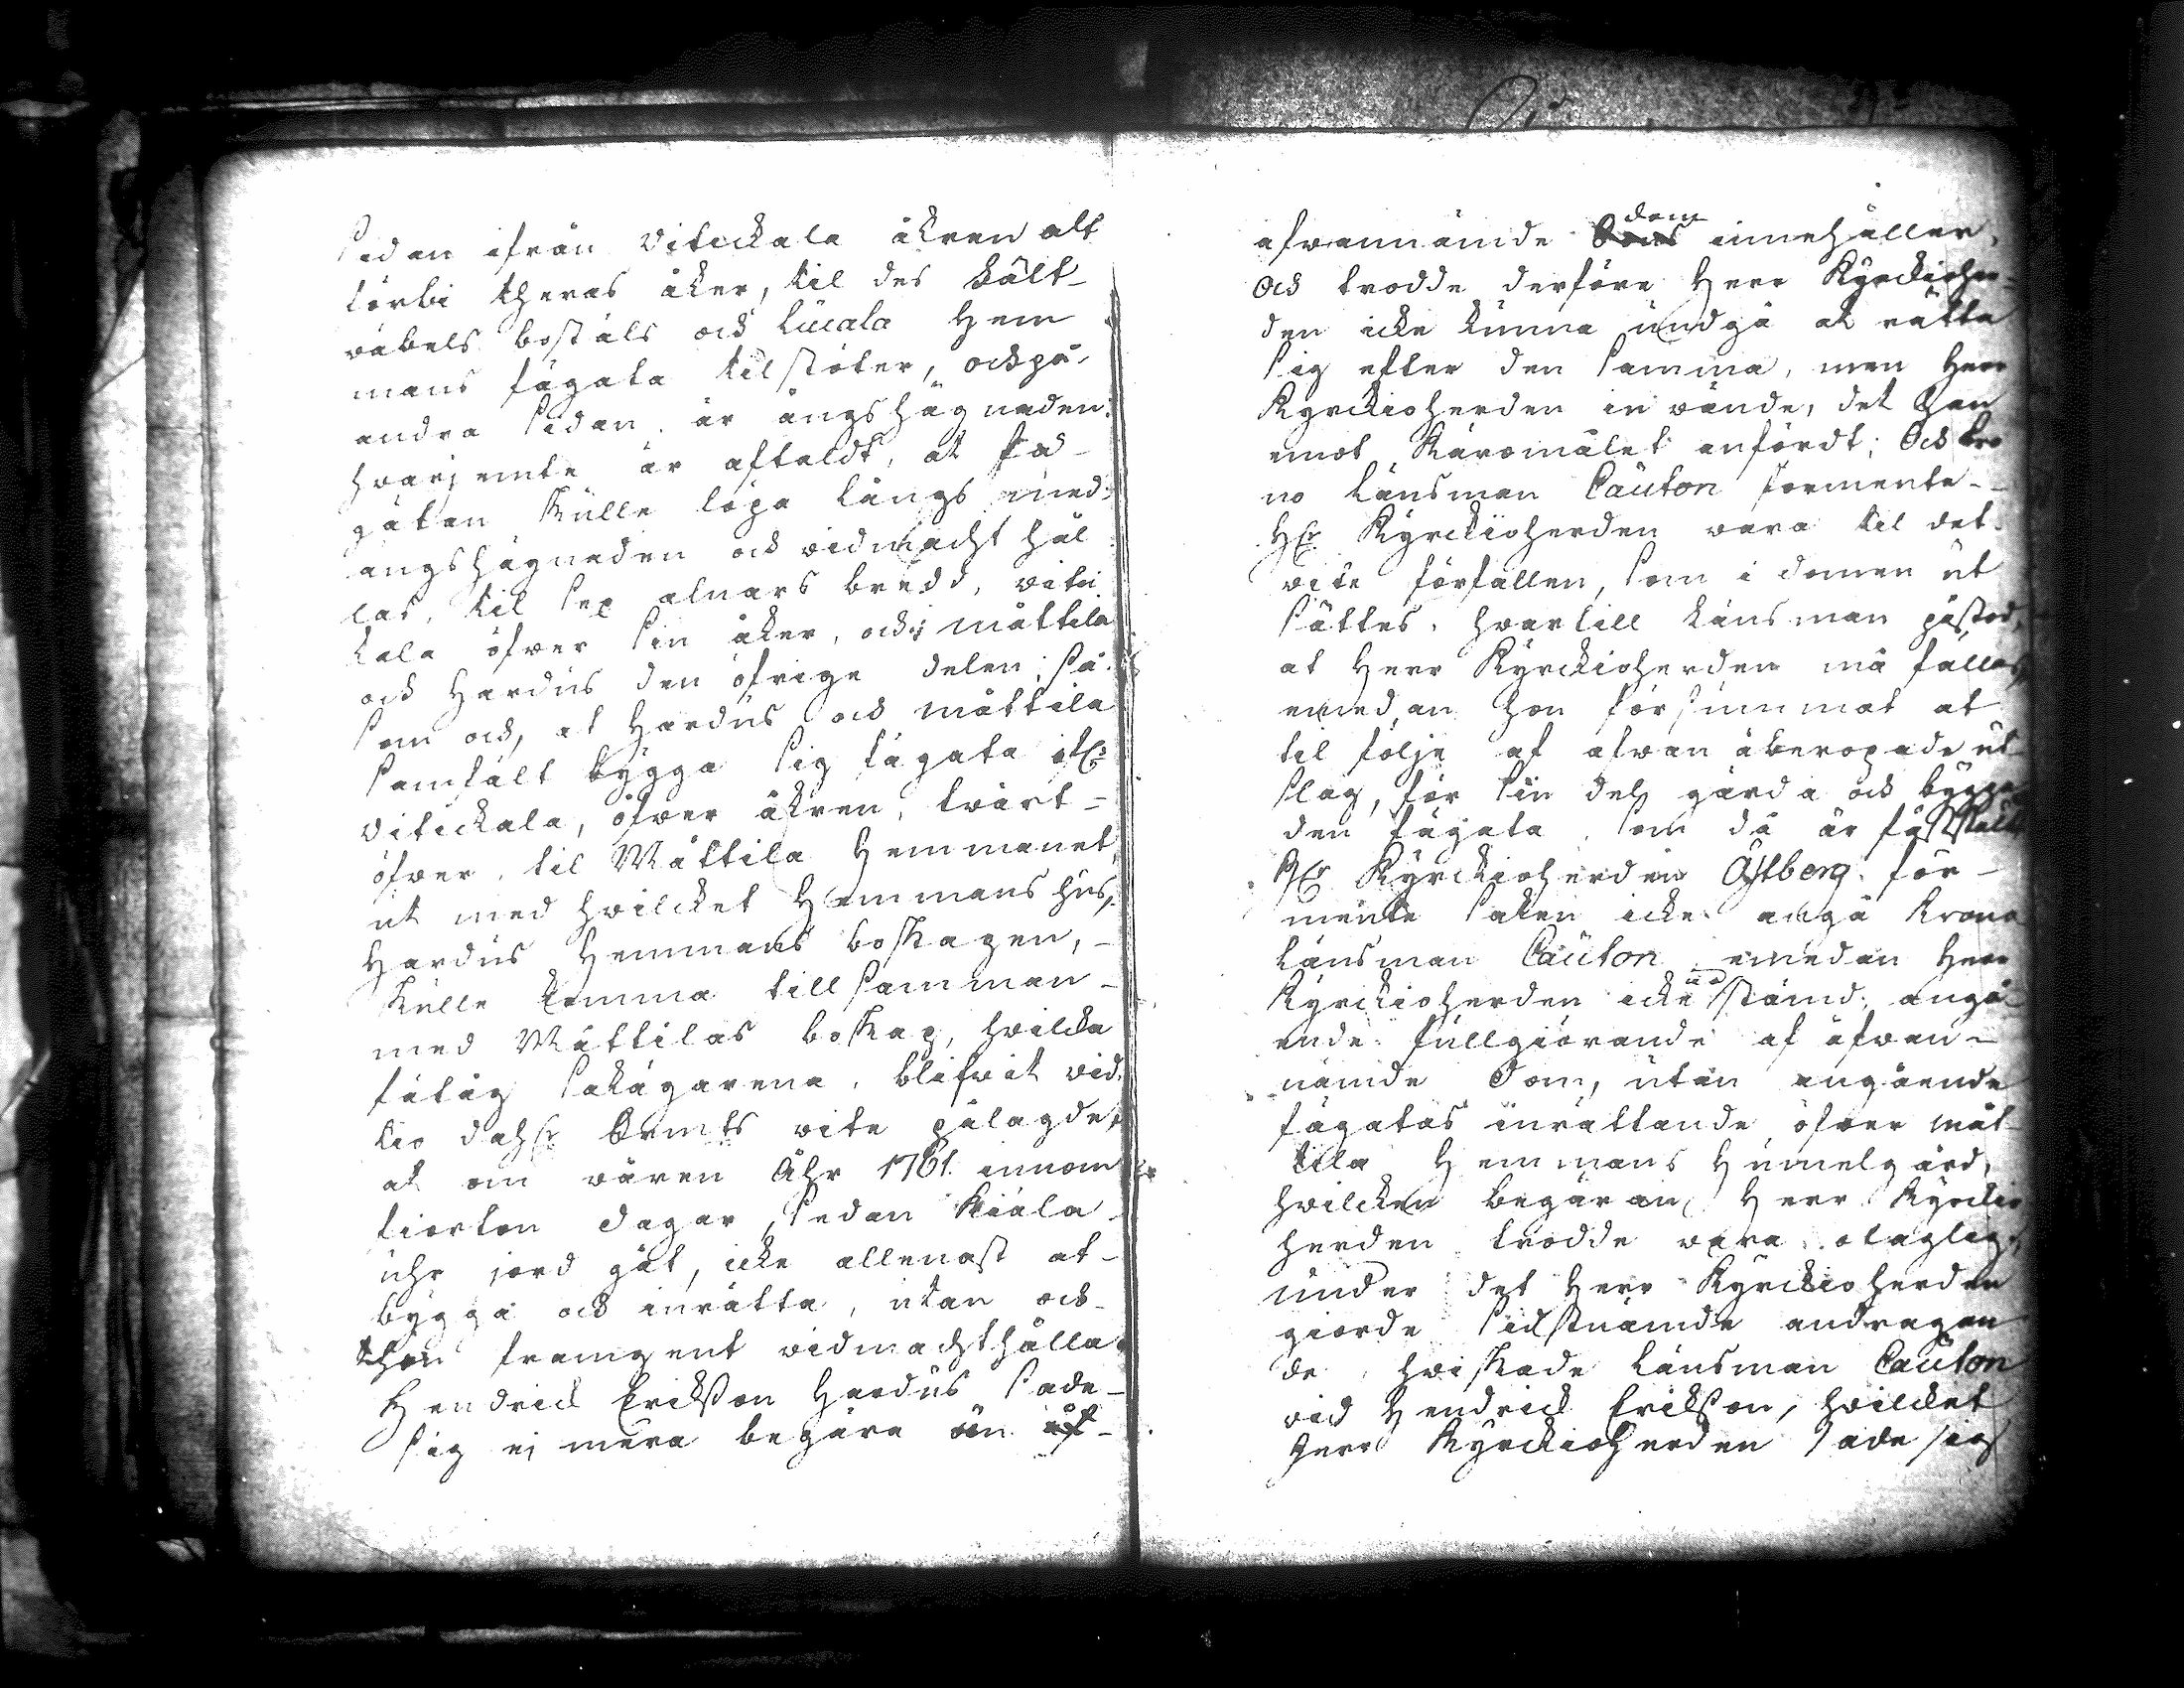 sidan ifrån Vitickala åkren alt
förbi theras åker, til des hält-
wäbels bostäls och Lucala Hem
mans fägata tilstöter, och på
andra sidan är ängshägnaden:
hvarjemte är aftaldt, at fä-
gatan skulle löpa långs med
ängshägnaden och widmacht hål
las, til sex alnars bredd, witic
kala öfwer sin åker, och måttila
och Hardus den öfrige delen, så
som och, at Hardus och måttila
samfält bygga sig fägata ifr:
Vitickala, öfwer åkren, twärt-
öfwer til Måttila Hemmanet,
ut med hwilcket Hemmans hus,
Hardus Hemmans boskapen,-
skulle komma tillsamman-
med Måttilas boskap, hwilcka
sakägarena blifwit wid
tio dahlr Srmts wite pålagde,
at om wåren Åhr 1761. innom
fiorton dagar, sedan kiäla
uhr jord gåt, icke allenast at-
bygga och inrätta, utan och-
then framgent widmachthålla.
Hendrick Erickson Hardus sade-
sig ej mera begära än af-
ofwannämde dom innehåller,
och trodde derföre Herr Kyrckioher-
den icke kunna undgå at rätta
sig efter den samma, men Herr
Kyrckioherden inwände, det han
emot käromålet anfördt; Och kro
no Länsman Cauton förmente-
Hr Kyrckioherden wara til det
wite förfallen, som i domen ut
sättes, hwartill Länsman påstod,
at Herr Kyrckioherden må fällas,
emedan han försummat at
til följe af ofwan åberopade ut
slag, för sin del gärda och bygga
den fägata, som då är fastställt
Hr Kyrckioherden Östberg för-
mente saken icke angå Krono
Länsman Cauton, emedan Herr
Kyrckioherden icke ud stämd angå
ende fullgiörande af ofwan-
nämde Dom, utan angående
fägatas inrättande öfwer Måt-
tila Hemmans Humelgård,
hwilcken begäran Herr Kyrckio
herden trodde wara olaglig,
under det Herr Kyrckioherden
giorde sidstnämde andragan
de, hwiskade Länsman Cauton
wid Hendrick Erickson, hwilcket
Herr Kyrckioherden sade sig